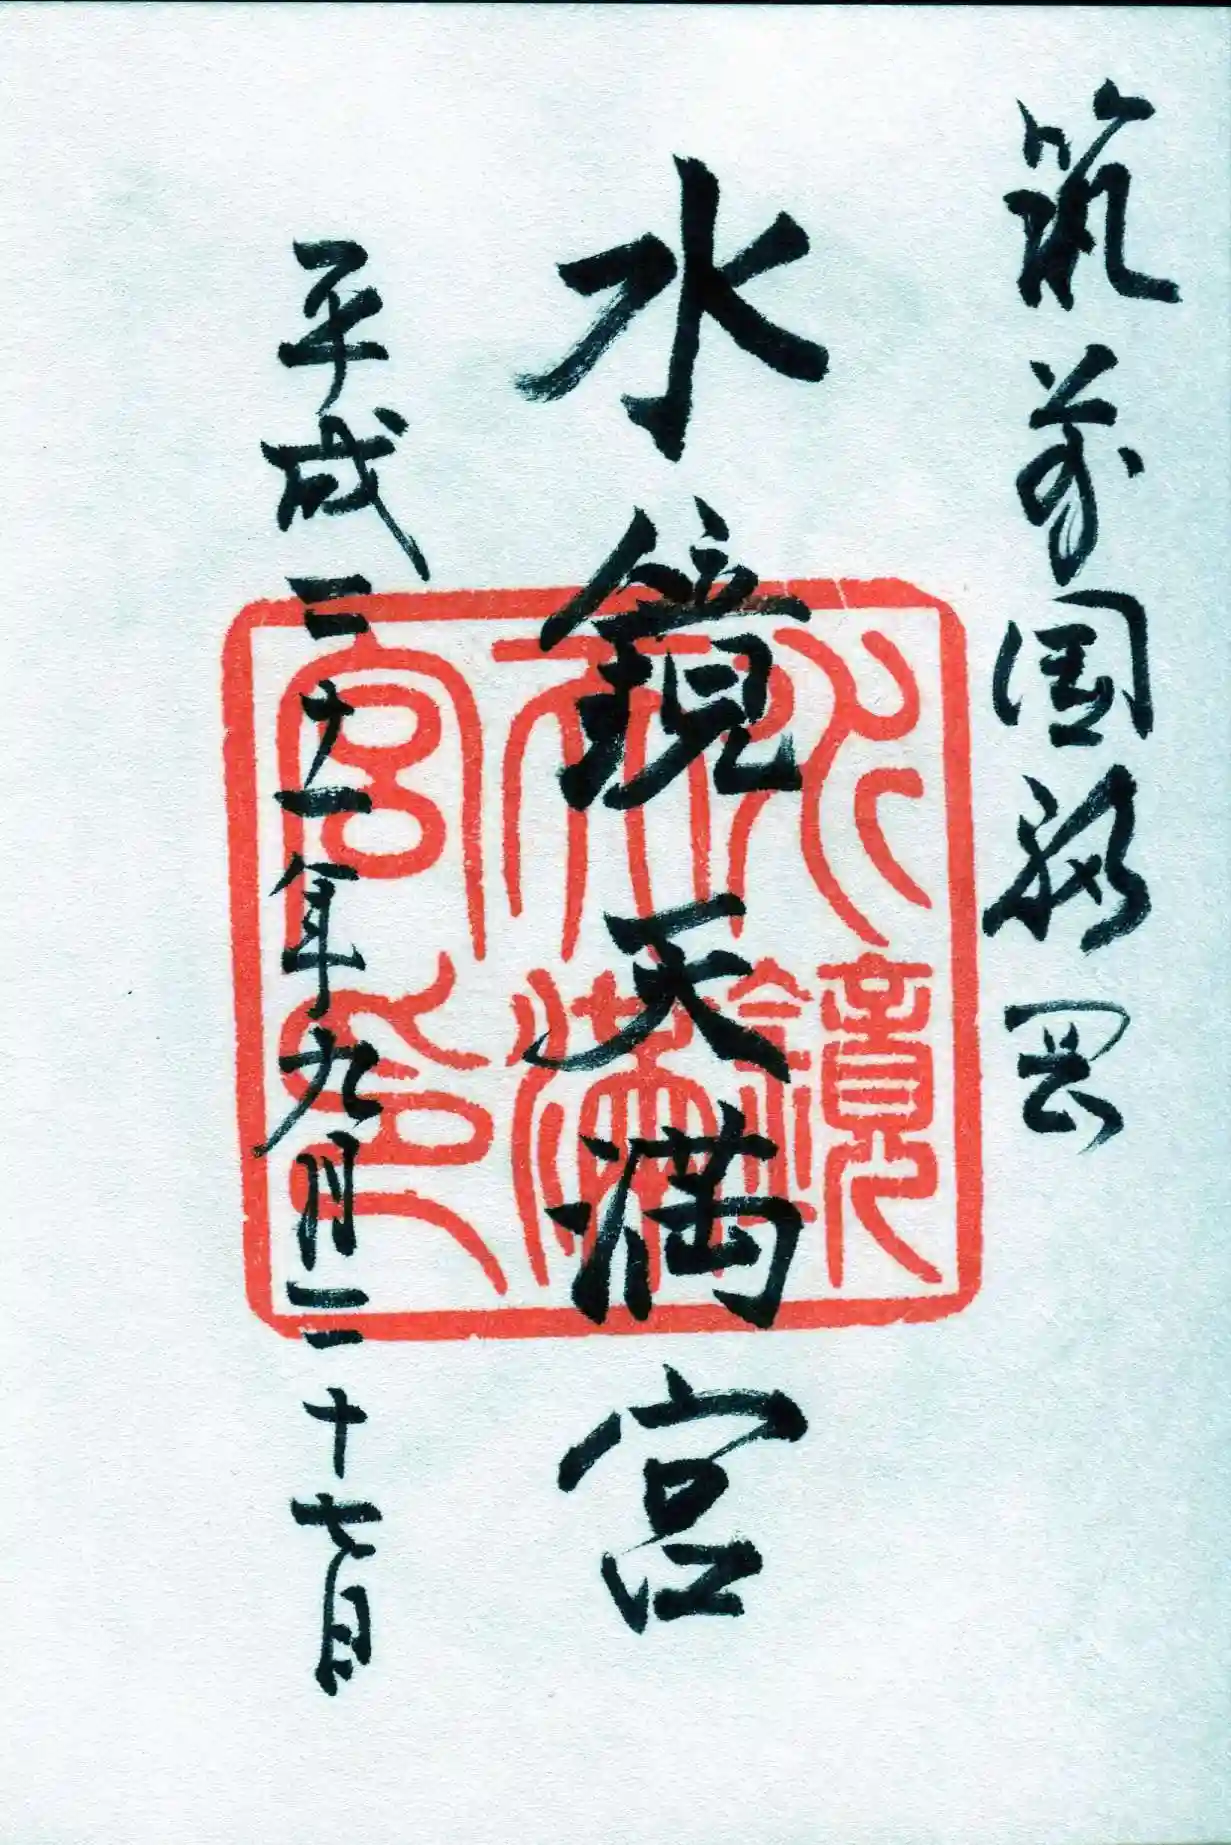 筑前國福岡
水鏡天満宮
平成二十一年九月二十七日
水鏡
天満
宮印